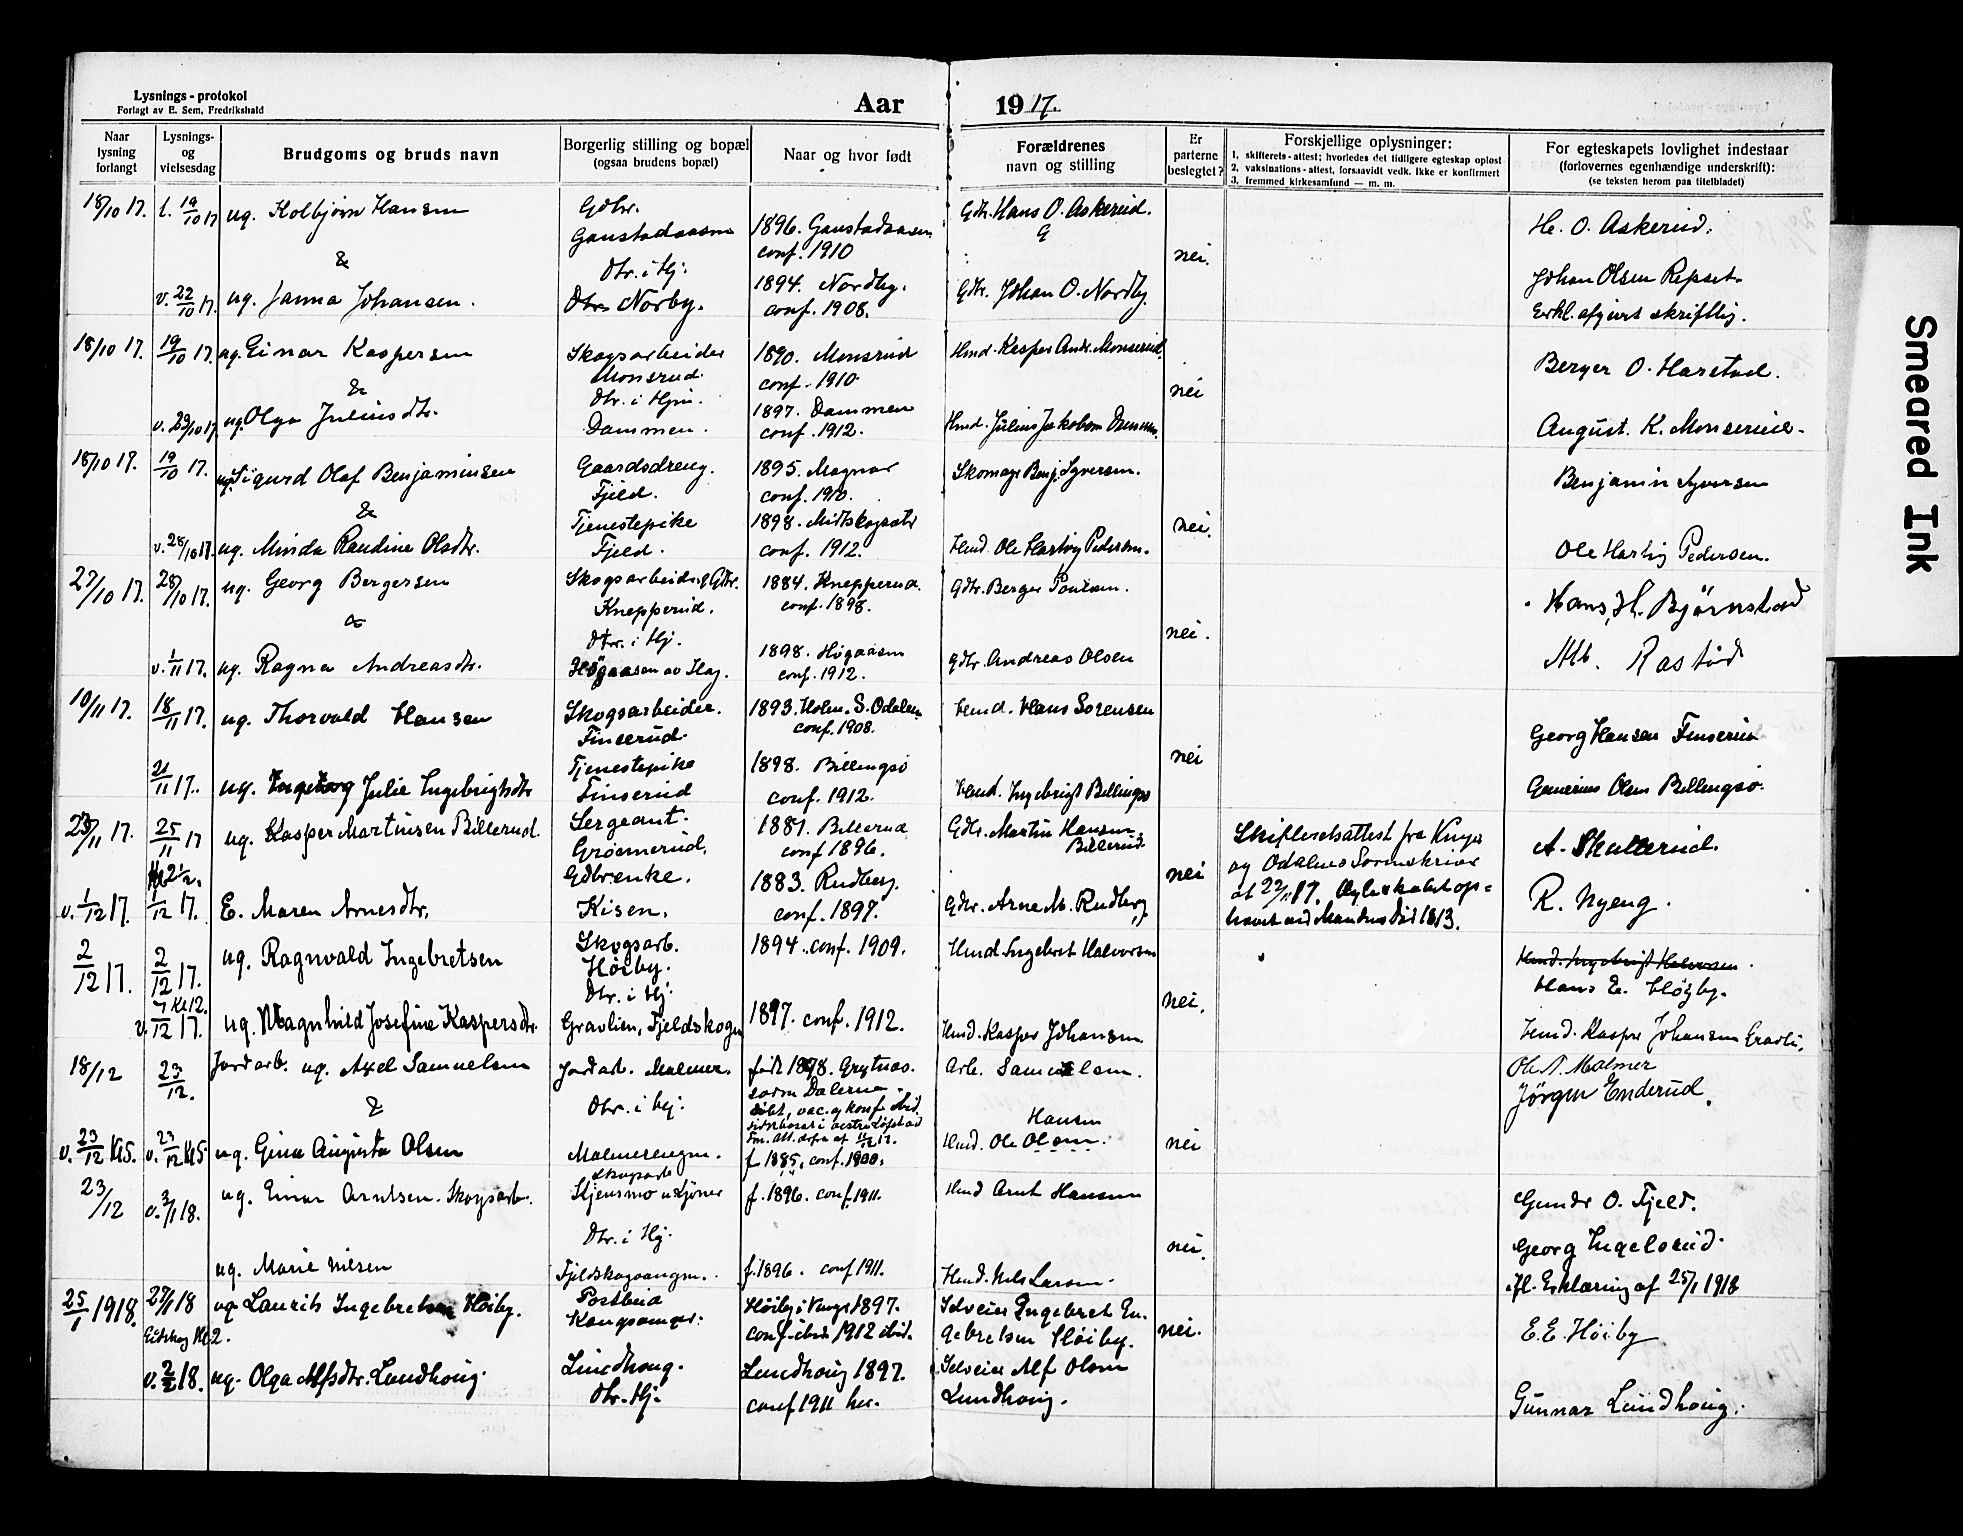 Lysnings - protokol
Forlagt av E. Sem, Fredrikshald
Aar 1917.
Naar lysning forlangt
Lysnings- og vielsesdag
Brudgoms og bruds navn
Borgerlig stilling og bopæl
(ogsaa brudens bopæl)
Naar og hvor født
Forældrenes
navn og stilling
Er parterne beslegtet?
Forskjellige oplysninger:
1, skifterets - attest; hvorledes det tidligere egteskap opløst
2, vaksinations - attest, forsaavidt vedk. ikke er konfirmert
3, fremmed kirkesamfund — m. m.
For egteskapets lovlighet indestaar
(forlovernes egenhændige underskrift):
(se teksten herom paa titelbladet)
18/10 17. l. 19/10 17 ug. Kolbjørn Hansen Gdbr. Gdbr. Hans O. Askerud.
Gaustadaasen 1896. Gaustadaasen H. O. Askerud.
& conf. 1910 nei.
Dtr. i Hj. 1894. Nordby. Johan Olsen Repset
v. 22/10 17. ug. Janna Johansen. Norby. conf. 1908. Gdbr. Johan O. Nordby. Erkl. afgivet skriftlig.
18/10 17. 19/10 17. ug. Einar Kaspersen Skogsarbeider 1890. Monsrud Hmd. Kasper Andr. Monserud.
Monsrud. conf. 1910. Berger O. Harstad.
& Dtr. i Hjm. nei
v. 29/10 17. ug. Olga Juliusdtr. Dammen. 1897. Dammen
conf. 1912. Hmd. Julius Jakobsen Dammen. August. K. Monserud.
18/10 17. 19/10 17. ug. Sigurd Olaf Benjaminsen Gaardsdreng. 1895. Magnor Skomager Benj. Syversen. Benjamin Syversen
Fjeld. conf. 1910.
& Tjenestepike 1898. Midtskogsætr nei.
v. 28/10 17. ug. Minda Randine Olsdtr. Fjeld. conf. 1912. Hmd. Ole Hartvig Pedersen. Ole Hartvig Pedersen.
27/10 17. 28/10 17. ug. Georg Bergersen Skogsarbeider, Gdbr. 1884. Knepperud. Gdbr. Berger Paulsen.
Knepperud. conf. 1898. Hans, H. Bjørnstad
& Dtr. i Hj. nei.
v. 1/11 17. ug. Ragna Andreasdtr. Høgaasen av Hag. 1898. Høgaasen
conf. 1912. Gdbr. Andreas Olsen Alb. Rastad
10/11 17. 18/11 17. ug. Thorvald Hansen Skogsarbeider. 1893. Holm. S. Odalen Hmd. Hans Sorensen
Finserud. conf. 1908. Georg Hansen Finserud
21/11 17. Tjenestepike 1898. Billingsø nei
ug. Ingeborg Julie Ingebrigtsdtr Finserud conf. 1912. Hmd. Ingebrigt Billingsø Olsen Billingsø.
23/11 17. 25/11 17 ug. Kasper Martinsen Billerud. Sergeant. 1881. Billerud Gdbr. Martin Hansen Billerud. Skifteretsattest fra Vinger A. Skullerud.
Grøsmerud. conf 1896. og Odalens Sorenskriver
Kl 2 1/2. Gdbr.enke. 1883. Rudberg. nei at 22/11 17. Egteskabet op=
v. 1/12 17. 1/12 17. E. Maren Arnesdtr. Kisen. conf. 1897. Gdbr. Arne M. Rudberg hævet ved Mandens Død 1913. R. Nyeng.
2/12 17. 2/12 17. ug. Ragnvald Ingebretsen Skogsarb. 1894. conf. 1909. Hmd. Ingebret Halvorsen Hmd. Ingebrigt Halvorsen.
Høiby. Hans E. Høiby.
Kl 12. Dtr. i Hj. nei.
v. 7/12 17. ug. Magnhild Josefine Kaspersdtr. Gravlien, Fjeldskogen 1897. conf. 1912. Hmd. Kasper Johansen Hmd. Kasper Johansen Gravli.
18/12 23/12. Jordarb. ug. Axel Samuelsen Jordarb. Malmer. født 1878. Grytnæs. Arb. Samuelsen. Ole N. Malmer
& Dtr. i Hj. Dalerne. Jörgen Enderud.
døbt, vac. og konf ibid.
Hansen
v. 23/12 Kl 5. v. 23/12 Kl 5 ug. Gina Augusta Olsen Malmerengen. f. 1885, conf. 1900. Hmd. Ole Olsen. nei
23/12 v. 3/1 18. ug. Einar Arntsen. Skogsarb. Skogsarb. f. 1896. conf. 1911. Hmd Arnt Hansen Gunder O. Fjeld.
Dtr. i Hj. nei. Georg Ingelsrud.
ug. Marie Nilsen Fjeldskogvangen. f. 1896. conf 1911. Hmd. Nils Larsen. Erklæring af 25/1 1918
25/1 1918. 27/1 18 ug. Laurits Ingebretsen Høiby. Postbud Høiby i Vinger 1897. Selveier Ingebret En-
Eidskog Kl 2. Kongsvinger. conf. ibid. 1912 ibid. gebretsen Høiby. nei. E. E. Høiby
v. 2/2 18. ug. Olga Alfsdtr. Lundhoug. Lundhoug. Lundhoug 1897. Selveier Alf Olsen
Dtr. Hj. conf 1911 her. Lundhoug. Gunnar Lundhoug.
Smeared Ink